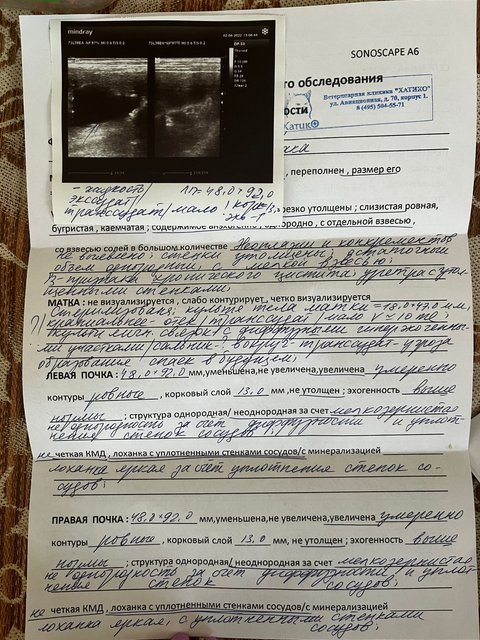 mindray
02-06-2022 13:06:44
SONOSCAPE A6
го обследования
Ветеринарная клиника "ХАТИКО"
ул. Авиационная, д. 70, корпус 1.
8 (495) 504-55-71
ости
Хатик
- жидкость/ ЛП=48,0×92,0
экссудат/
транссудат/мало
, переполнен , размер его
резко утолщены ; слизистая ровная,
бугристая , каемчатая ; содержимое однородно , с отдельной взвесью ,
со взвесью солей в большом количестве Неоплазии и конкрементов
не выявлено; стенки утолщены; остаточный
объем однородный, с мелкой взвесью;
признаки хронического цистита; уретра с уплот-
ненными стенками;
МАТКА : не визуализируется , слабо контурирует , четко визуализируется
Стерилизована; культя тела матки =18,0×47,0 мм,
краниальнее отек/транссудат/мало V≈10 мл;
неоднородными гиперэхогенны-
ми участками/сальник; вокруг - транссудат - угроза
образования спаек в будущем;
ЛЕВАЯ ПОЧКА : 48,0×92,0 мм,уменьшена,не увеличена,увеличена умеренно
контуры ровные , корковый слой 13,0 мм ,не утолщен ; эхогенность выше
нормы ; структура однородная/ неоднородная за счет мелкозернистая
неоднородность за счет диффузности и уплот-
нения стенок сосудов;
не четкая КМД , лоханка с уплотненными стенками сосудов/с минерализацией
лоханка яркая за счет уплотнения стенок со-
судов;
ПРАВАЯ ПОЧКА : 48,0×92,0 мм,уменьшена,не увеличена,увеличена умеренно
контуры ровные , корковый слой 13,0 мм, не утолщен ; эхогенность выше
нормы ; структура однородная/ неоднородная за счет мелкозернистая
неоднородность за счет диффузности и уплот-
нения стенок сосудов;
не четкая КМД , лоханка с уплотненными стенками сосудов/с минерализацией
лоханка яркая, с уплотненными стенками
сосудов;